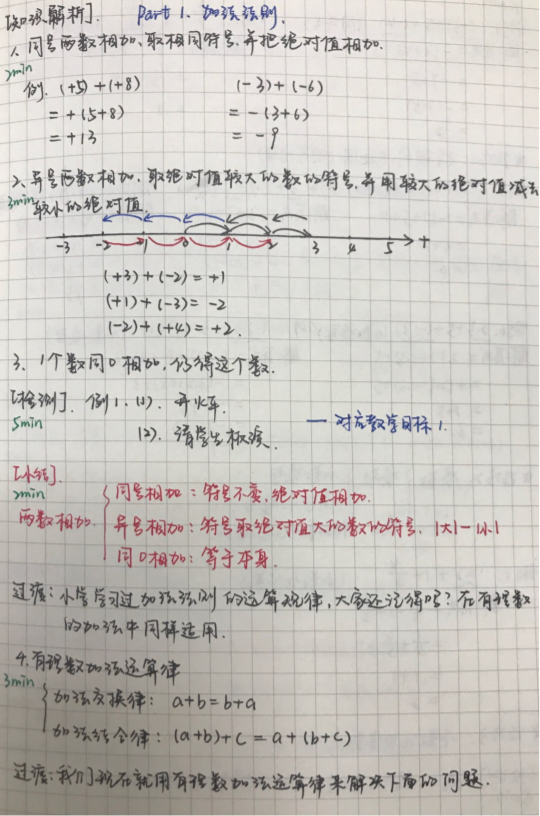 [知识解析]. Part 1. 加法法则.
1. 同号两数相加,取相同符号,并把绝对值相加.
2min
例. (+5)+(+8) (-3)+(-6)
= +(5+8) = -(3+6)
= +13 = -9
2、异号两数相加,取绝对值较大的数的符号,并用较大的绝对值减去
3min 较小的绝对值.
-3 -2 -1 0 1 2 3 4 5 +
(+3)+(-2)= +1
(+1)+(-3)= -2
(-2)+(+4)= +2.
3、1个数同0相加,仍得这个数.
[检测]. 例1. (1). 开火车.
5min (2). 请学生板演. — 对应教学目标1.
[小结].
2min 同号相加:符号不变,绝对值相加.
两数相加. 异号相加:符号取绝对值大的数的符号. |大|-|小|
同0相加:等于本身.
过渡:小学学习过加法法则的运算规律,大家还记得吗?在有理数
的加法中同样适用.
4.有理数加法运算律
3min 加法交换律: a+b=b+a
加法结合律: (a+b)+c = a+(b+c)
过渡:我们现在就用有理数加法运算律来解决下面的问题.